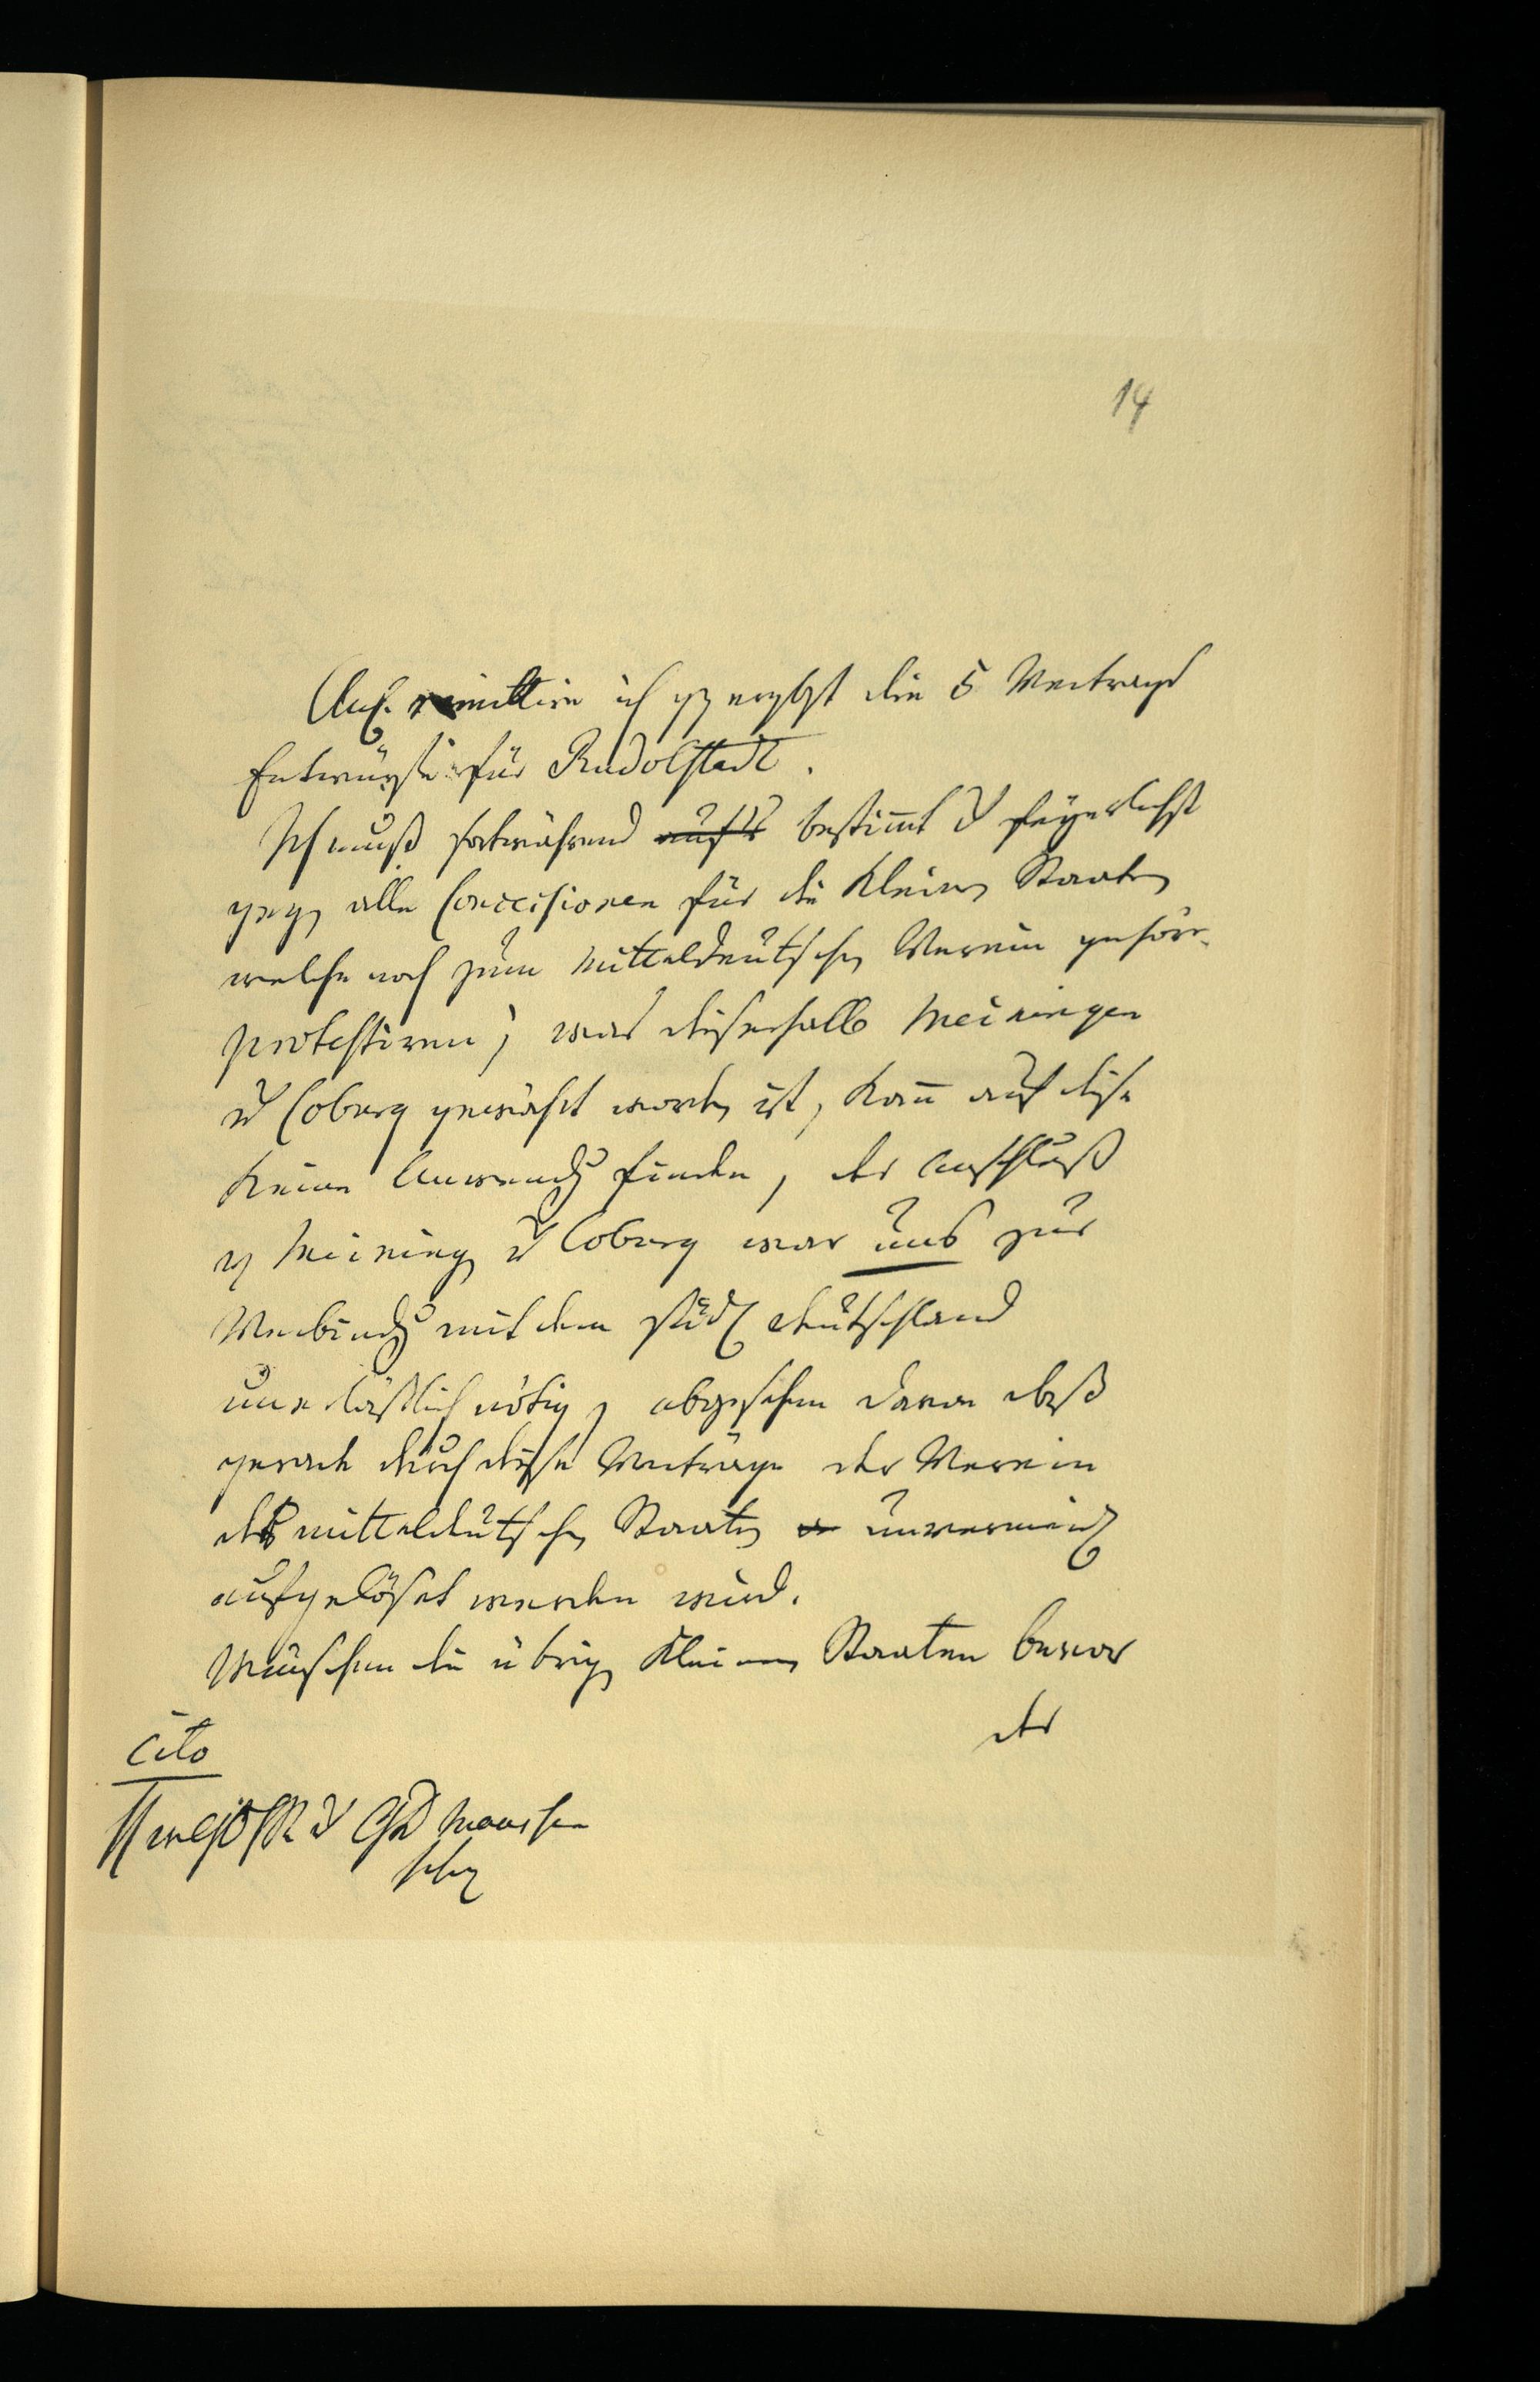 14
Anl. remittire ich gz ergbst die 5 Vertrags
Entwürfe für Rudolstadt.
Ich muß fortwährend aufs bestimt u feyerlichst
gegen alle Concessionen für die kleinen Staaten
welche noch zum mitteldeutschen Verein gehören
protestiren; was dieserhalb Meiningen
u Coburg gewährt worden ist, kan auf diese
keine Anwendg finden, der Anschluß
v Meining u Coburg war uns zur
Verbindg mit dem südl deutschland
unerläßlich nötig, abgesehen davon daß
gerade durch diese Verträge der Verein
der mitteldeutschen Staaten unvermeidl
aufgelöset werden wird.
Wünschen die übrigen kleinen Staaten bevor
der
Cito
u Maassen